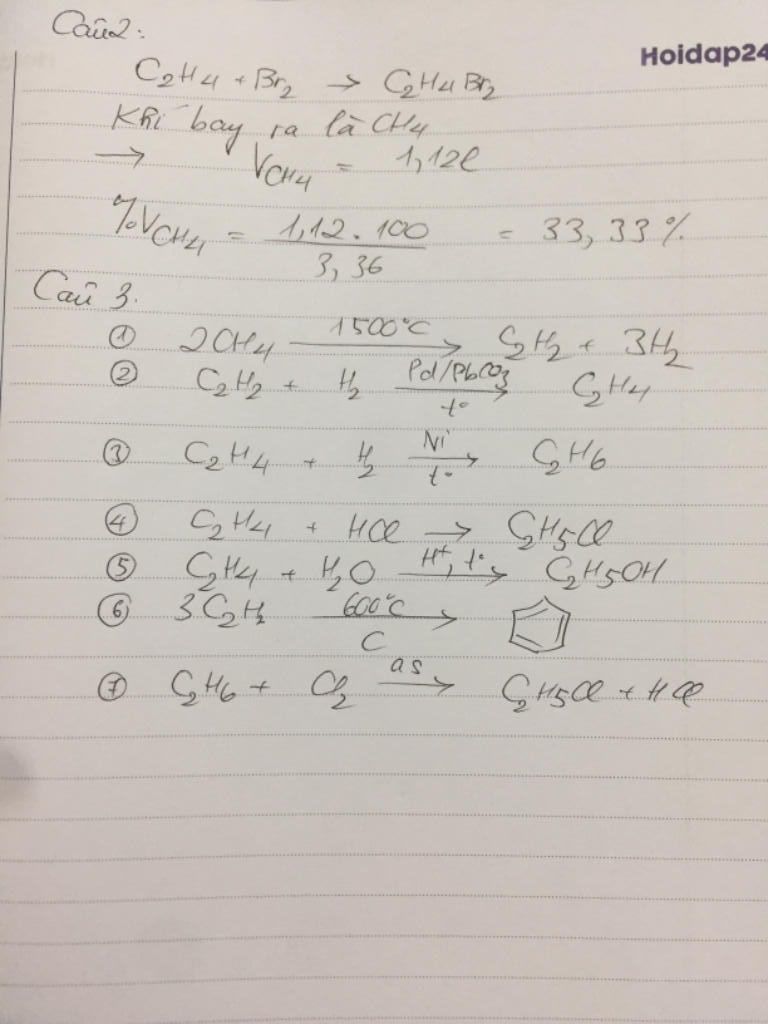 Câu 2:
Hoidap24
C₂H₄ + Br₂ → C₂H₄Br₂
Khí bay ra là CH₄
→ V_CH₄ = 1,12l
%V_CH₄ = 1,12 . 100 / 3,36 = 33,33%
Câu 3.
① 2CH₄ 1500°C → C₂H₂ + 3H₂
② C₂H₂ + H₂ Pd/PbCO₃ → t° C₂H₄
③ C₂H₄ + H₂ Ni → t° C₂H₆
④ C₂H₄ + HCl → C₂H₅Cl
⑤ C₂H₄ + H₂O H⁺, t° → C₂H₅OH
⑥ 3C₂H₂ 600°C → C
⑦ C₂H₆ + Cl₂ as → C₂H₅Cl + HCl